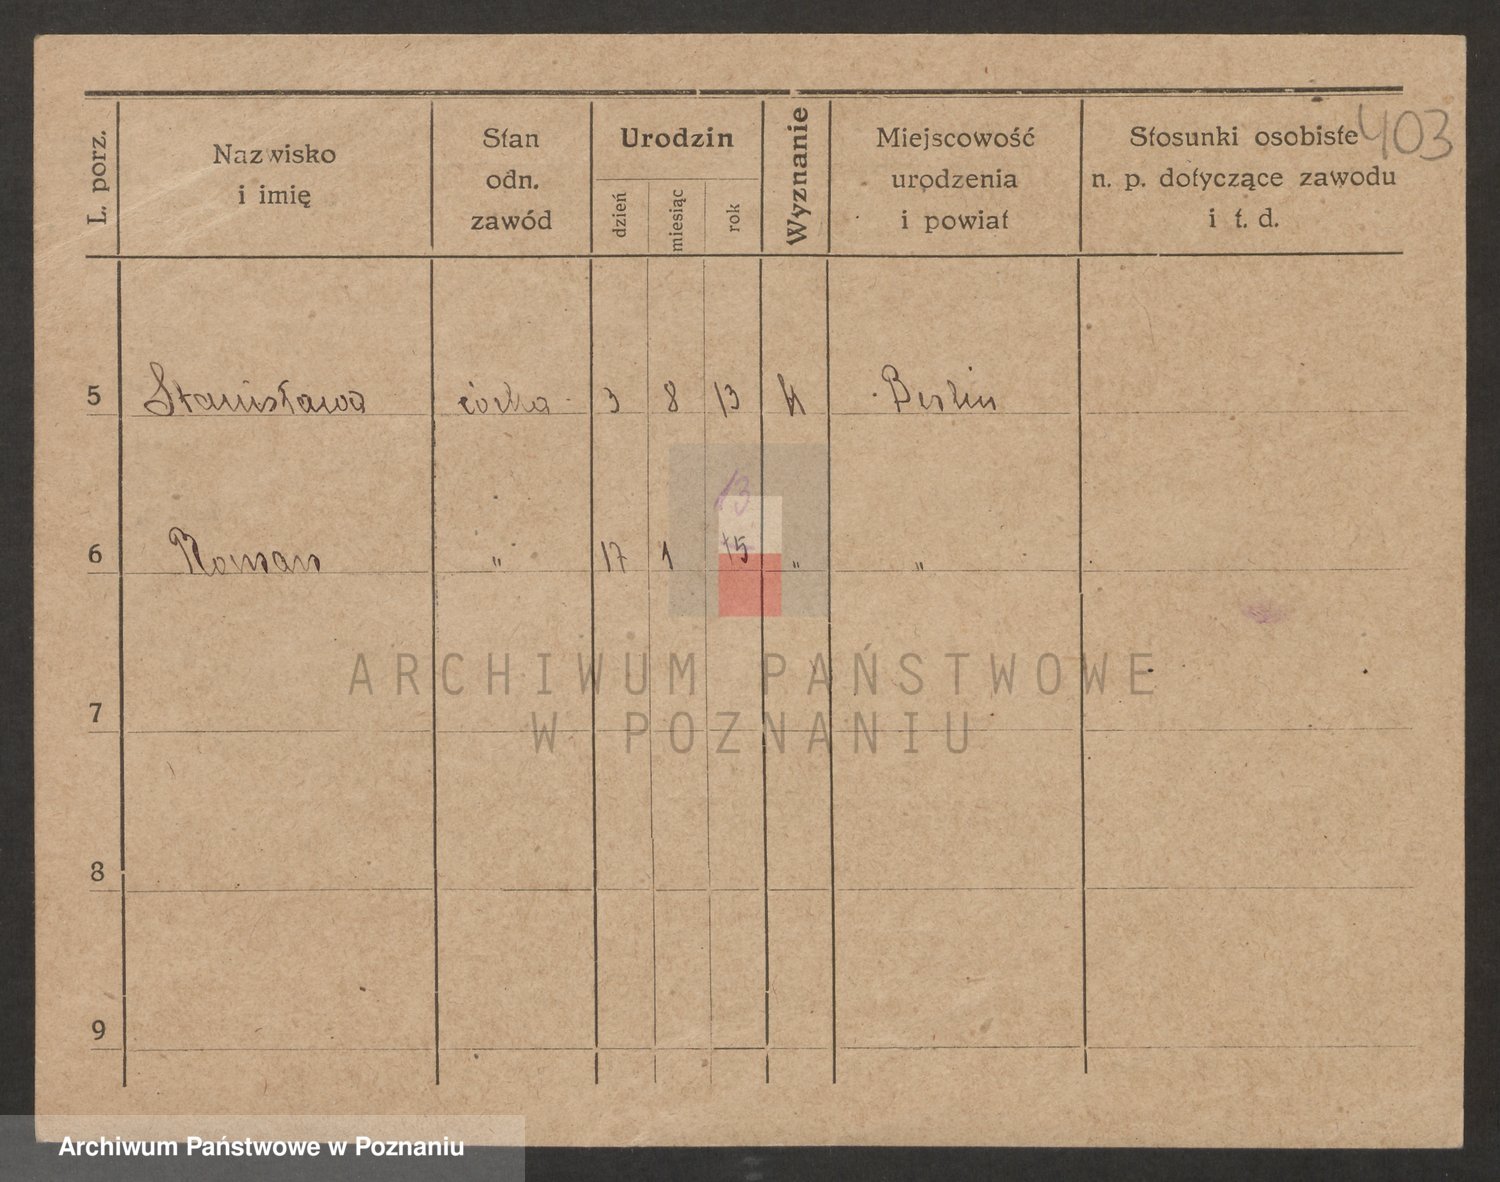 403
L. porz.
Nazwisko
i imię
Stan
odn.
zawód
Urodzin
dzień
miesiąc
rok
Wyznanie
Miejscowość
urodzenia
i powiat
Stosunki osobiste
n. p. dotyczące zawodu
i t. d.
5 Stanisława córka 3 8 13 k Berlin
13
6 Roman " 17 1 15 " "
7
8
9
ARCHIWUM PAŃSTWOWE
W POZNANIU
Archiwum Państwowe w Poznaniu